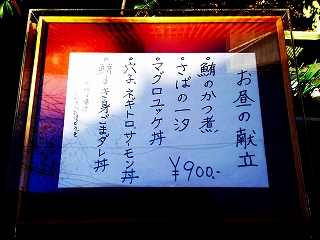 お昼の献立
・鮪のかつ煮
・さばの一汐
・マグロユッケ丼
・バチネギトロサイモン丼
・鮪すき身ごまダレ丼
¥900.-